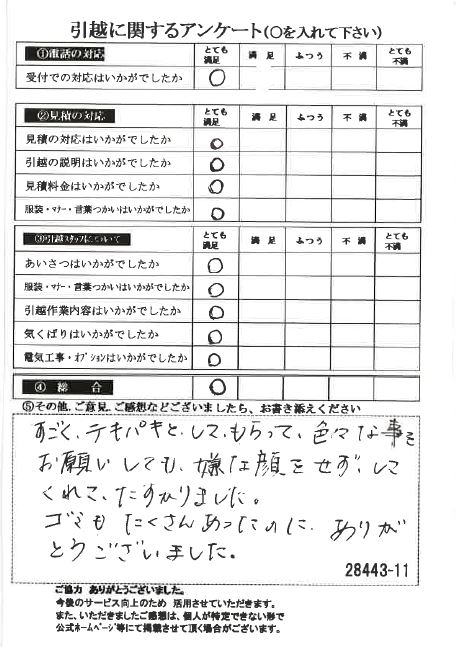 引越に関するアンケート(〇を入れて下さい)
①電話の対応 とても満足 満足 ふつう 不満 とても不満
受付での対応はいかがでしたか 〇
②見積の対応 とても満足 満足 ふつう 不満 とても不満
見積の対応はいかがでしたか 〇
引越の説明はいかがでしたか 〇
見積料金はいかがでしたか 〇
服装・マナー・言葉つかいはいかがでしたか 〇
③引越スタッフについて とても満足 満足 ふつう 不満 とても不満
あいさつはいかがでしたか 〇
服装・マナー・言葉つかいはいかがでしたか 〇
引越作業内容はいかがでしたか 〇
気くばりはいかがでしたか 〇
電気工事・オプションはいかがでしたか 〇
④ 総 合 〇
⑤その他、ご意見、ご感想などございましたら、お書き添えください
すごく、テキパキと、して、もらって、色々な事を
お願いしても、嫌な顔をせず、して
くれて、たすかりました。
ゴミも たくさんあったのに、ありが
とうございました。
28443-11
ご協力 ありがとうございました。
今後のサービス向上のため 活用させていただきます。
また、いただきましたご感想は、個人が特定できない形で
公式ホームページ等にて掲載させて頂く場合がございます。